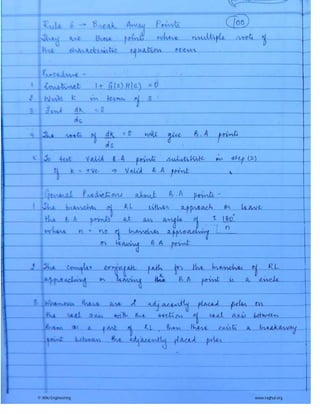 Rule 6 → Break Away Points
100
They are those points where multiple roots of
the characteristic equation occur
Procedure -
1 Construct 1 + G(s)H(s) = 0
2 Write K in terms of S
3 Find dK/ds = 0
4 The roots of dK/ds = 0 will give B.A points
5 To test valid B.A points substitute in step (2)
If K = +ve ⇒ Valid B.A point
General Predictions about B.A points -
1 The branches of RL either approach or leave
the B.A points at an angle of ± 180°/n
where n = no of branches approaching
or leaving B.A point
2 The complex conjugate path for the branches of RL
approaching or leaving the B.A point is a circle
3 Whenever there are 2 adjacently placed poles on
the real axis with the section of real axis between
them as a part of RL then there exists a breakaway
point between the adjacently placed poles
© Wiki Engineering
www.raghul.org